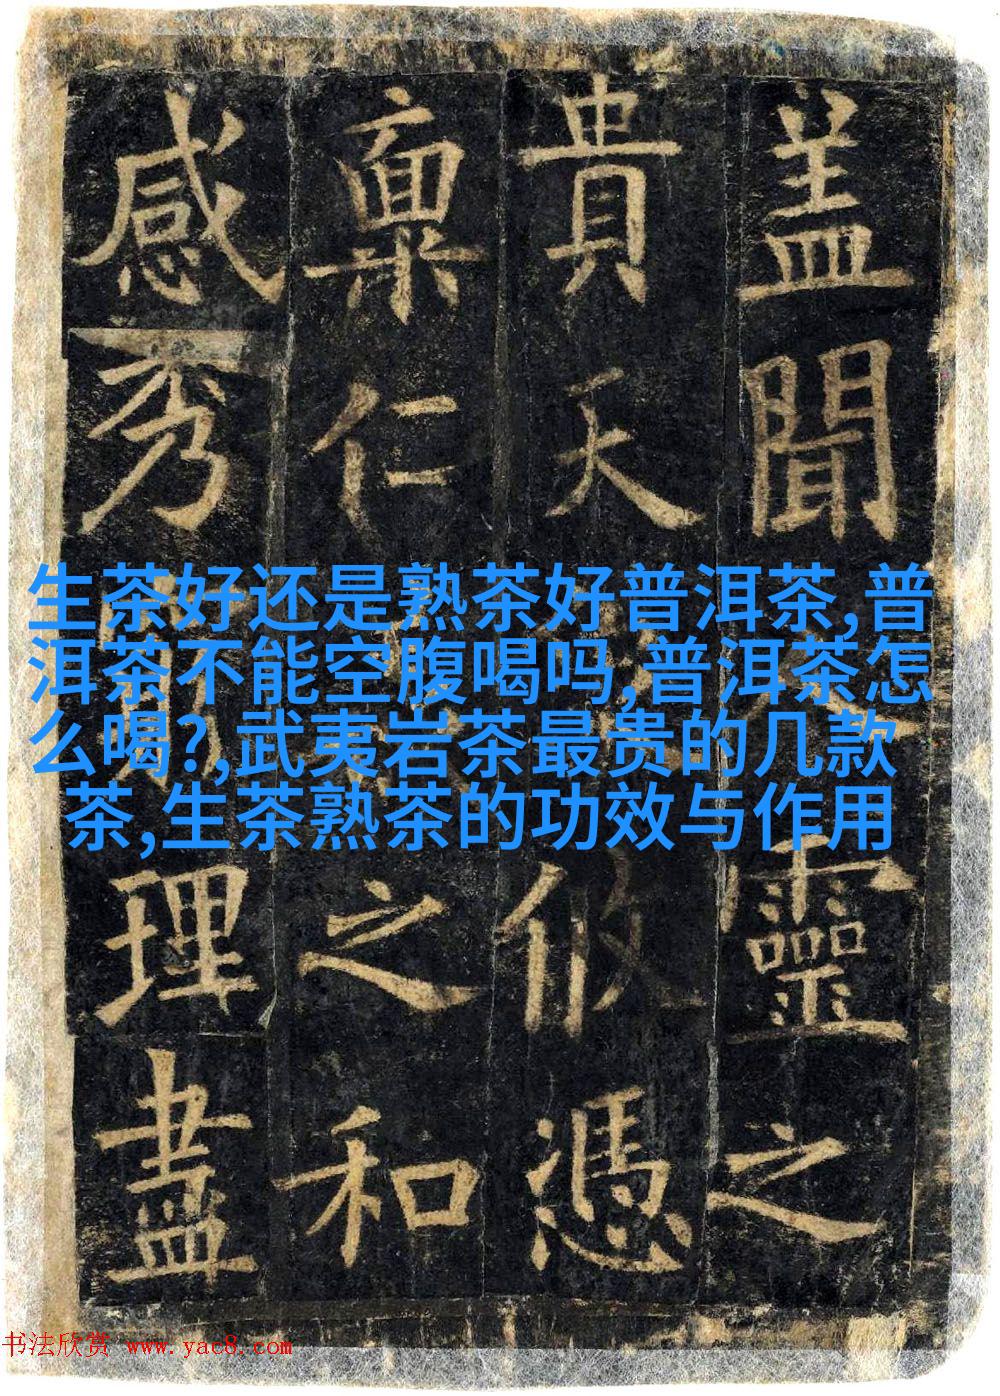 盖聞靈之
貴天攸憑
稟仁之和
感秀理盡
生茶好还是熟茶好普洱茶,普
洱茶不能空腹喝吗,普洱茶怎
么喝?,武夷岩茶最贵的几款
茶,生茶熟茶的功效与作用
书法欣赏 www.yac8.com